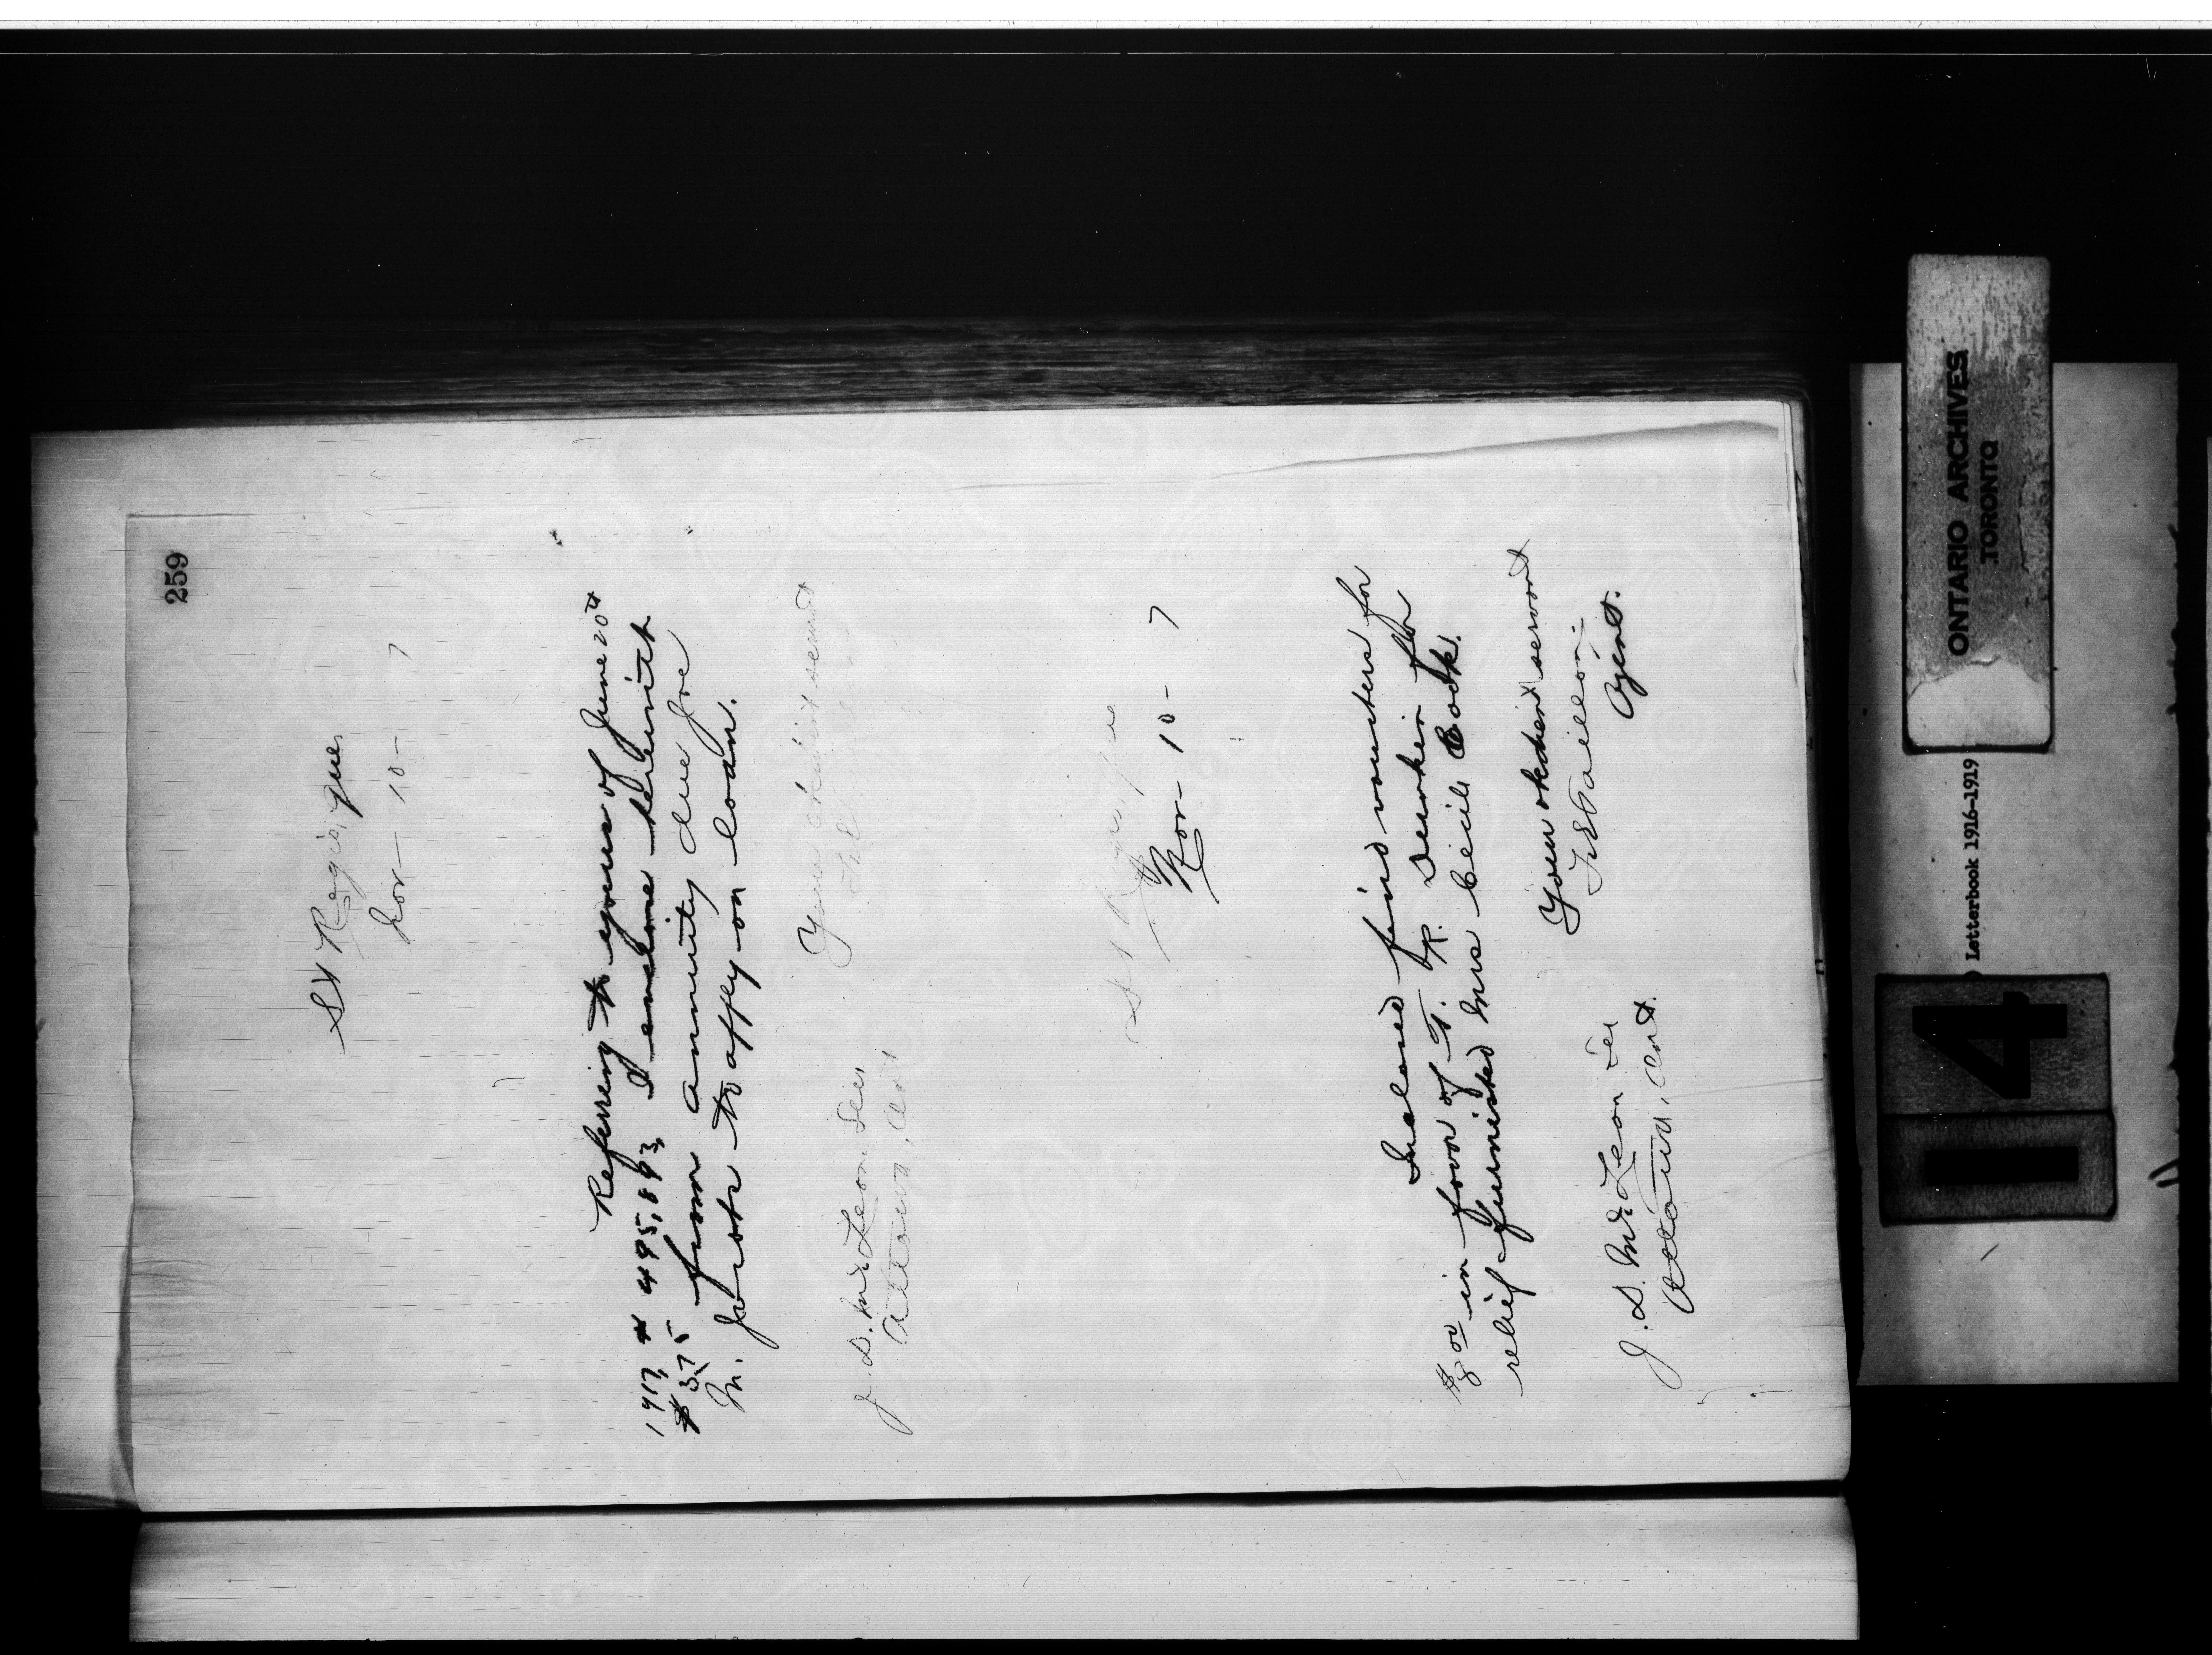 259
St Regis, Que.
Nov - 10 - 7
Referring to yours of June 20th
1917 # 495,893, I enclose herewith
$ 3.75 from annuity due Joe
M. Jocko to apply on loan.
Your obedient servant
J. D. McLean Sec.
Ottawa, Ont
St Regis, Que
Nov - 10 - 7
Inclosed find vouchers for
$8 00 in favor of T. K. Durkin for
relief furnished Mrs Cecile Cook.
Your obedient servant
F. E. Taillon
Agent.
J. D. McLean Sec
Ottawa, Ont.
ONTARIO ARCHIVES
TORONTO
Letterbook 1916-1919
14